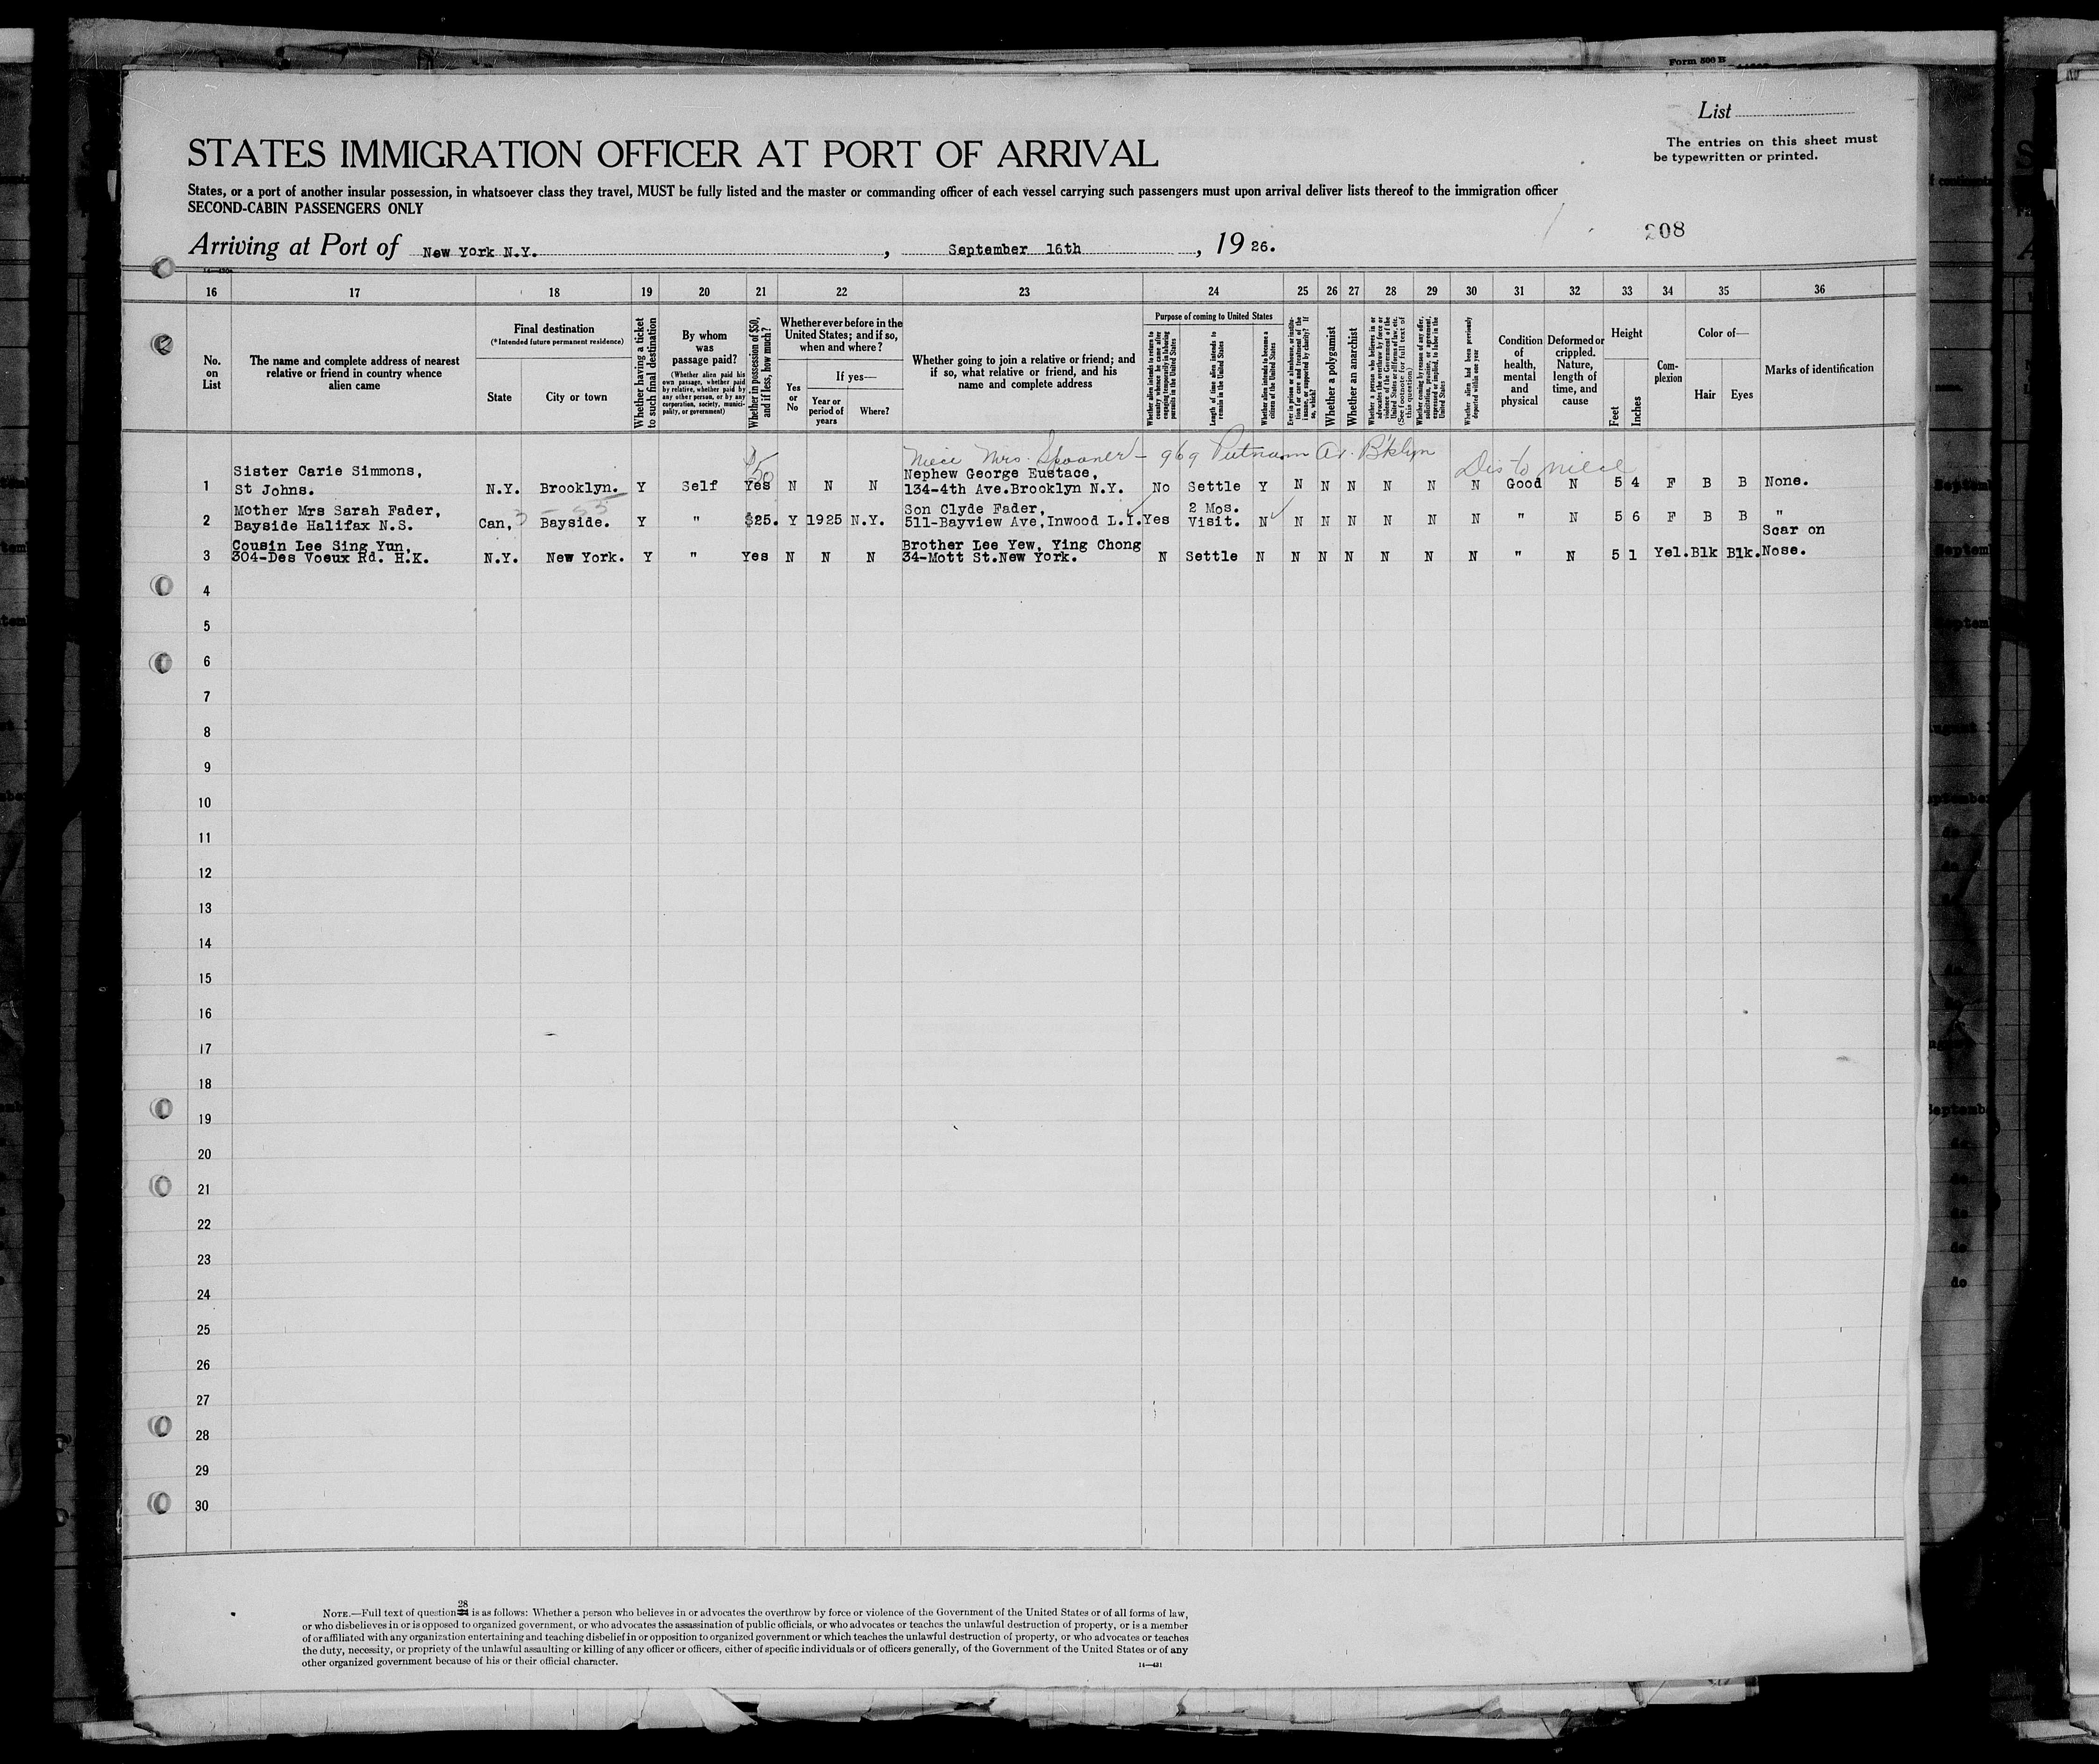 Form 500 B
List
The entries on this sheet must
be typewritten or printed.
STATES IMMIGRATION OFFICER AT PORT OF ARRIVAL
States, or a port of another insular possession, in whatsoever class they travel, MUST be fully listed and the master or commanding officer of each vessel carrying such passengers must upon arrival deliver lists thereof to the immigration officer
SECOND-CABIN PASSENGERS ONLY
208
Arriving at Port of New York N.Y. , September 16th , 19 26.
16 17 18 19 20 21 22 23 24 25 26 27 28 29 30 31 32 33 34 35 36
No. on List
The name and complete address of nearest
relative or friend in country whence
alien came
Final destination
(*Intended future permanent residence)
State
City or town
Whether having a ticket
to such final destination
By whom
was
passage paid?
(Whether alien paid his
own passage, whether paid
by relative, whether paid by
any other person, or by any
corporation, society, munici-
pality, or government)
Whether in possession of $50,
and if less, how much?
Whether ever before in the
United States; and if so,
when and where?
If yes—
Yes
or
No
Year or
period of
years
Where?
Whether going to join a relative or friend; and
if so, what relative or friend, and his
name and complete address
Purpose of coming to United States
Whether alien intends to return to
country whence he came after
engaging temporarily in laboring
pursuits in the United States
Length of time alien intends to
remain in the United States
Whether alien intends to become a
citizen of the United States
Ever in prison or almshouse, or institu-
tion for care and treatment of the
insane, or supported by charity? If
so, which?
Whether a polygamist
Whether an anarchist
Whether a person who believes in or
advocates the overthrow by force or
violence of the Government of the
United States or all forms of law, etc.
(See footnote for full text of
this question)
Whether coming by reason of any offer,
solicitation, promise, or agreement,
expressed or implied, to labor in the
United States
Whether alien had been previously
deported within one year
Condition
of
health,
mental
and
physical
Deformed or
crippled.
Nature,
length of
time, and
cause
Height
Feet
Inches
Com-
plexion
Color of—
Hair
Eyes
Marks of identification
Niece Mrs. Spooner - 969 Putnam Av. B'klyn
Dis to niece
$50
1 Sister Carie Simmons,
St Johns. N.Y. Brooklyn. Y Self Yes N N N Nephew George Eustace,
134-4th Ave.Brooklyn N.Y. No Settle Y N N N N N N Good N 5 4 F B B None.
2 Mother Mrs Sarah Fader,
Bayside Halifax N.S. Can, Bayside. Y " $25. Y 1925 N.Y. Son Clyde Fader,
511-Bayview Ave,Inwood L.I. Yes 2 Mos.
Visit. N N N N N N N " N 5 6 F B B "
3 Cousin Lee Sing Yun,
304-Des Voeux Rd. H.K. N.Y. New York. Y " Yes N N N Brother Lee Yew, Ying Chong
34-Mott St.New York. N Settle N N N N N N N " N 5 1 Yel. Blk Blk. Scar on
Nose.
4
5
6
7
8
9
10
11
12
13
14
15
16
17
18
19
20
21
22
23
24
25
26
27
28
29
30
NOTE.—Full text of question 28 is as follows: Whether a person who believes in or advocates the overthrow by force or violence of the Government of the United States or of all forms of law,
or who disbelieves in or is opposed to organized government, or who advocates the assassination of public officials, or who advocates or teaches the unlawful destruction of property, or is a member
of or affiliated with any organization entertaining and teaching disbelief in or opposition to organized government or which teaches the unlawful destruction of property, or who advocates or teaches
the duty, necessity, or propriety of the unlawful assaulting or killing of any officer or officers, either of specific individuals or of officers generally, of the Government of the United States or of any
other organized government because of his or their official character.
14—431